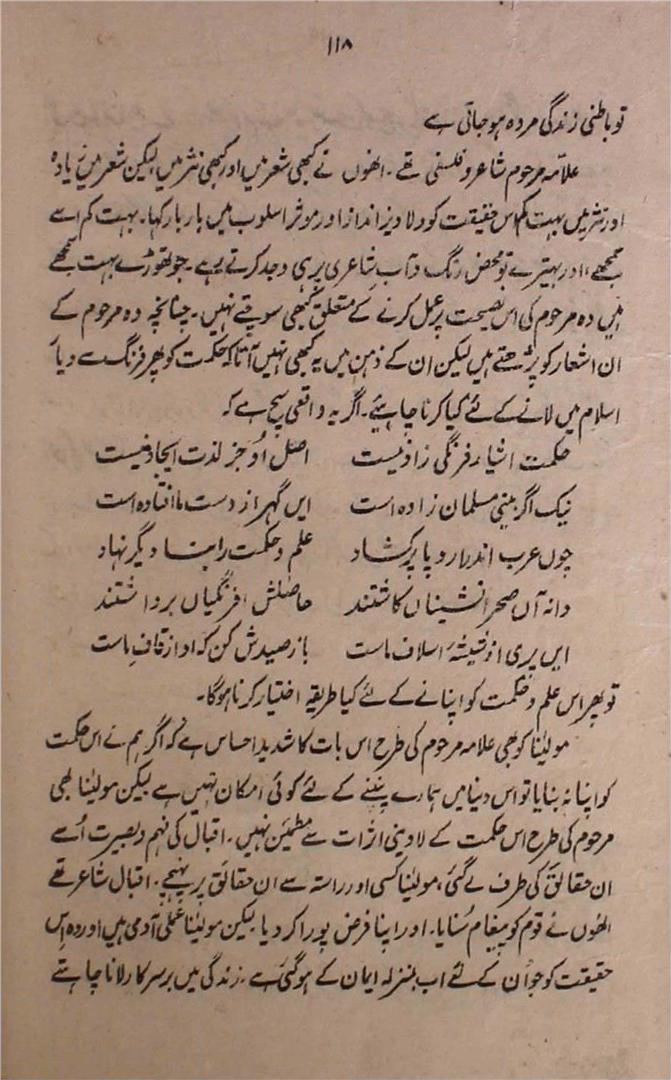 ۱۱۸
تو باطنی زندگی مردہ ہو جاتی ہے
علامہ مرحوم شاعر و فلسفی تھے۔ انھوں نے کبھی شعر میں اور کبھی نثر میں، لیکن شعر میں زیادہ
اور نثر میں بہت کم اس حقیقت کو دلاویز انداز اور موثر اسلوب میں بار بار کہا۔ بہت کم اسے
سمجھے، اور بہتیرے تو محض رنگ و آب شاعری پر ہی وجد کرتے رہے۔ جو تھوڑے بہت سمجھے
ہیں وہ مرحوم کی اس نصیحت پر عمل کرنے کے متعلق کبھی سوچتے نہیں۔ چنانچہ وہ مرحوم کے
ان اشعار کو پڑھتے ہیں لیکن ان کے ذہن میں یہ کبھی نہیں آتا کہ حکمت کو پھر فرنگ سے دیار
اسلام میں لانے کے لئے کیا کرنا چاہیئے۔ اگر یہ واقعی سچ ہے کہ
حکمت اشیاء فرنگی زاد نیست اصل او جز لذت ایجاد نیست
نیک اگر بینی مسلمان زادہ است ایں گہر از دست ما افتادہ است
چوں عرب اندر اروپا پر کشاد علم و حکمت را بنا دیگر نہاد
دانہ آں صحرا نشیناں کاشتند حاصلش افرنگیاں برداشتند
ایں پری از شیشۂ اسلاف ماست باز صیدش کن کہ او از قاف ماست
تو پھر اس علم و حکمت کو اپنانے کے لئے کیا طریقہ اختیار کرنا ہوگا۔
مولینا کو بھی علامہ مرحوم کی طرح اس بات کا شدید احساس ہے کہ اگر ہم نے اس حکمت
کو اپنا نہ بنایا تو اس دنیا میں ہمارے پنپنے کے لئے کوئی امکان نہیں ہے لیکن مولینا بھی
مرحوم کی طرح اس حکمت کے لادینی اثرات سے مطمئن نہیں۔ اقبال کی فہم و بصیرت اُسے
ان حقائق کی طرف لے گئی، مولینا کسی اور راستہ سے ان حقائق پر پہنچے۔ اقبال شاعر تھے
انھوں نے قوم کو پیغام سُنایا۔ اور اپنا فرض پورا کر دیا لیکن مولینا عملی آدمی ہیں اور وہ اس
حقیقت کو جو اُن کے لئے اب بمنزلہ ایمان کے ہو گئی ہے۔ زندگی میں برسر کار لانا چاہتے